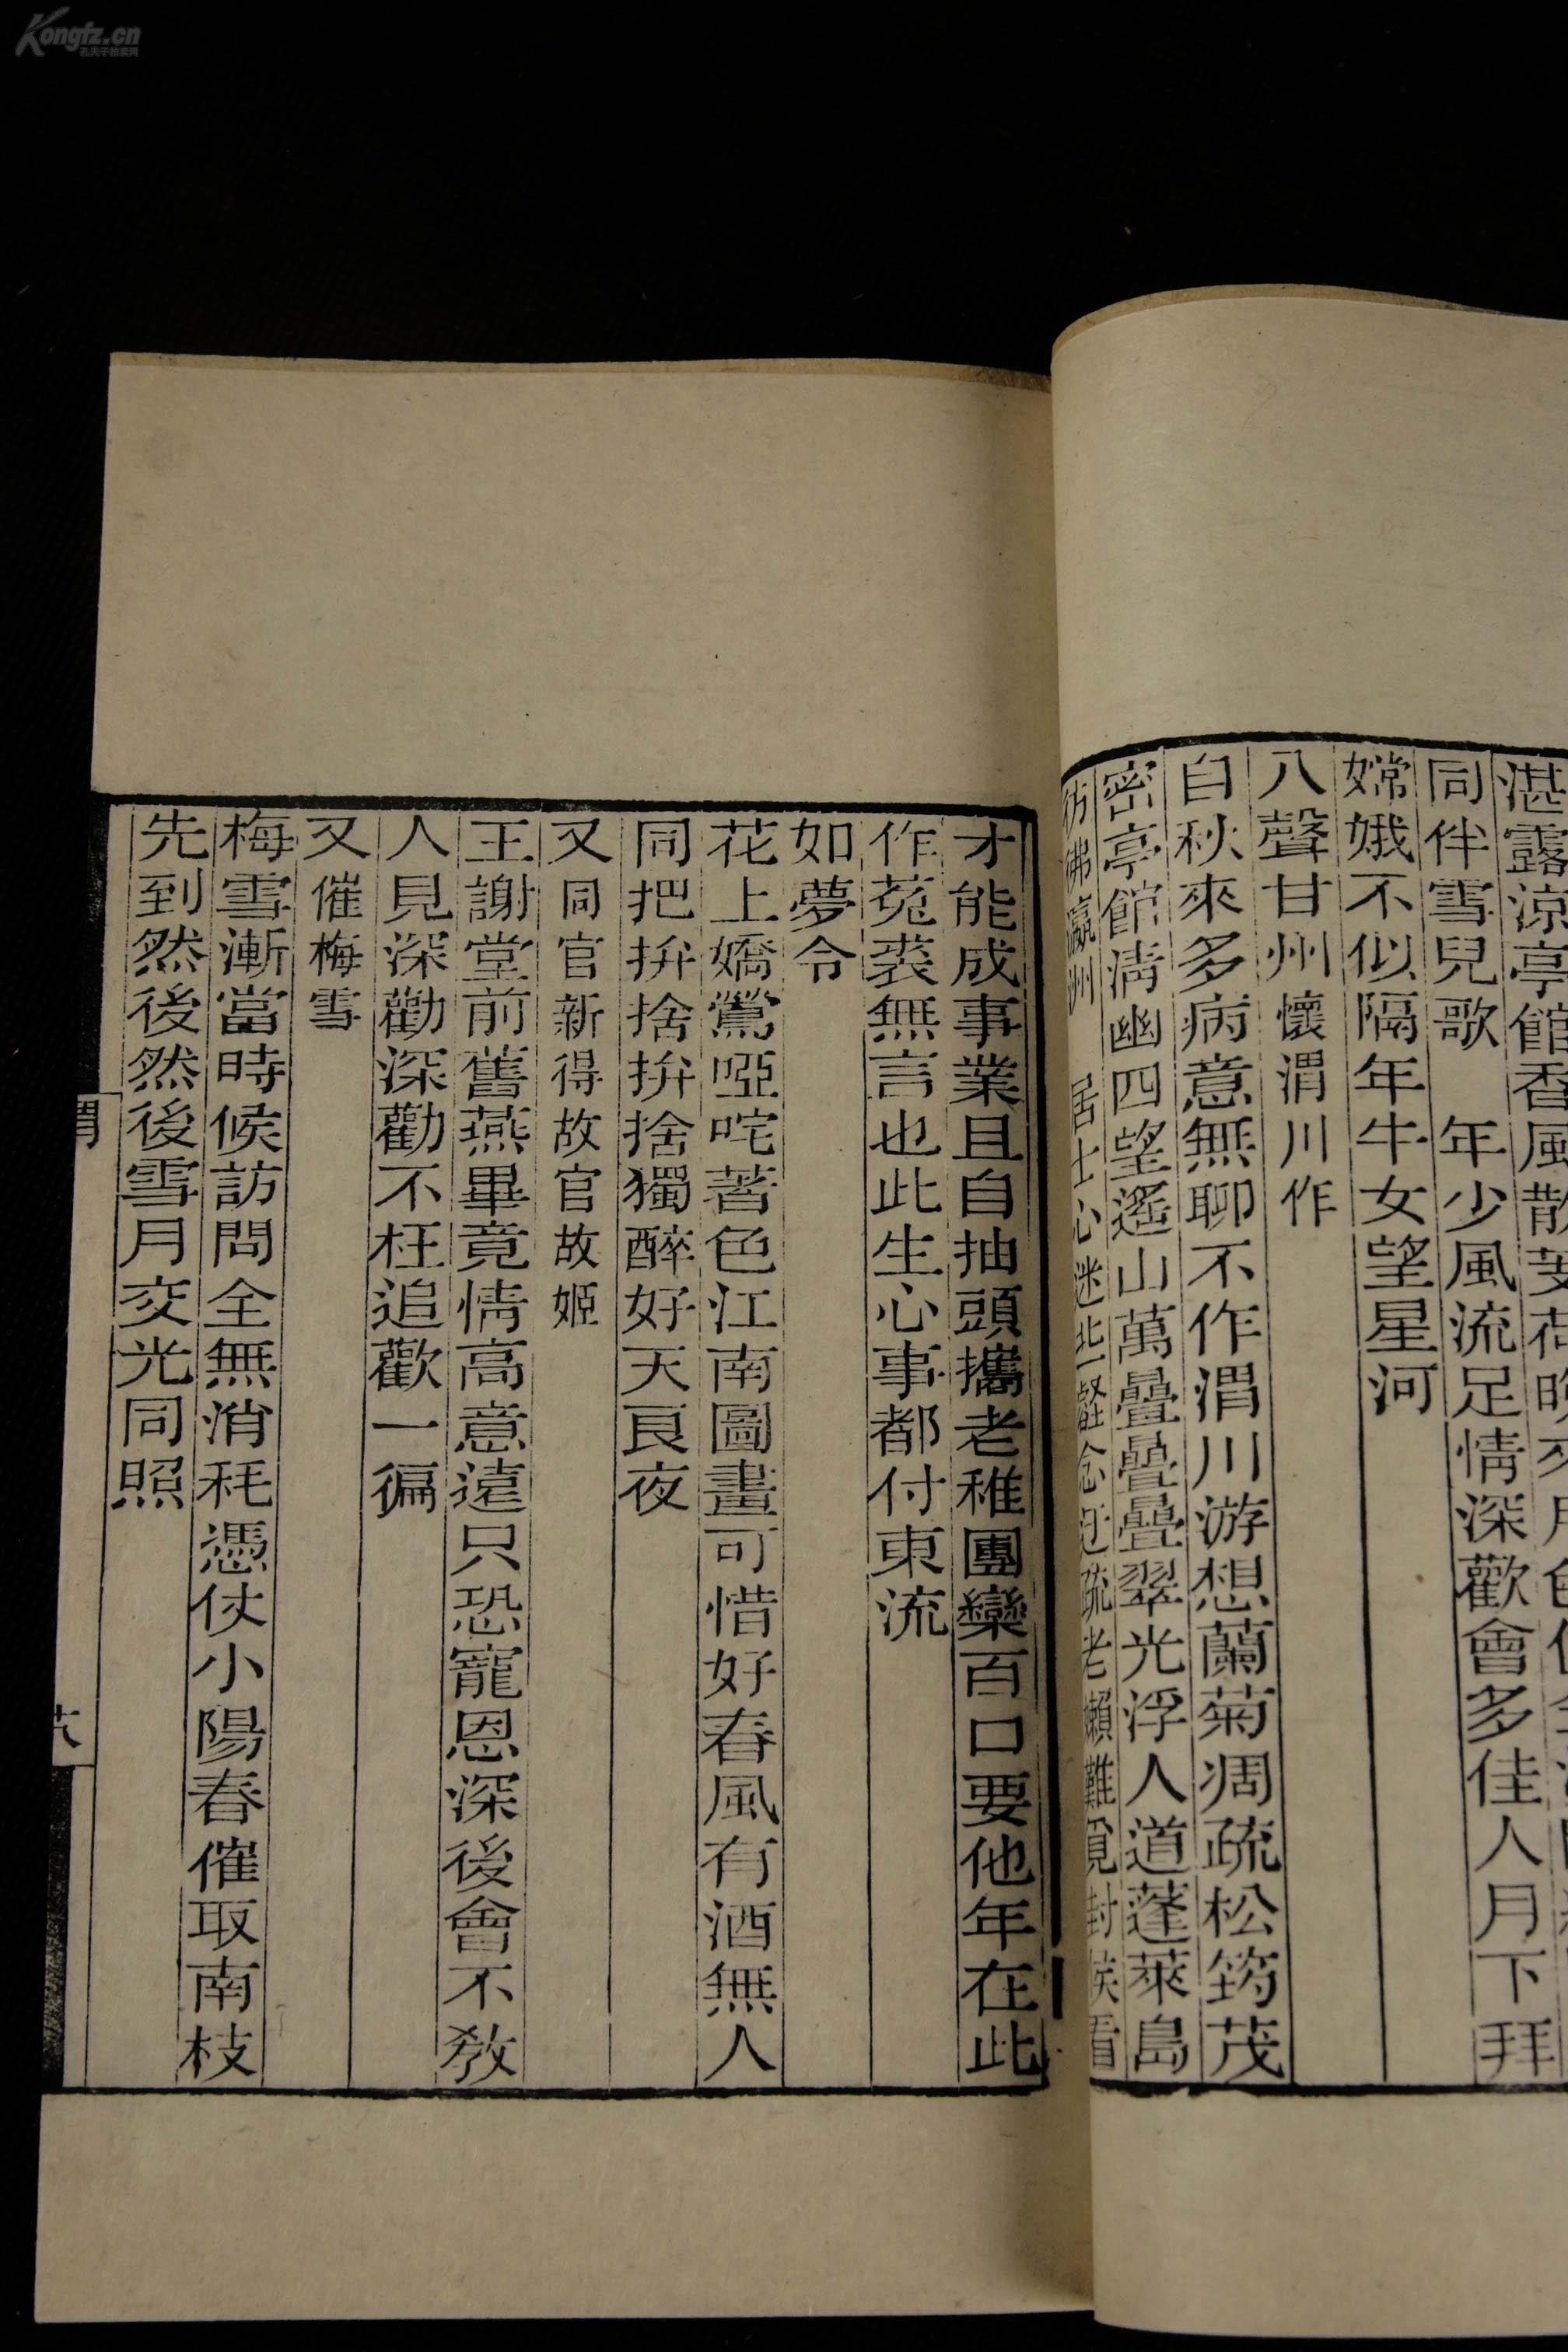 Kongfz.cn
孔夫子拍卖网
湛露涼亭館香風散
同伴雪兒歌　年少風流足情深歡會多佳人月下拜
嫦娥不似隔年牛女望星河
八聲甘州懷渭川作
自秋來多病意無聊不作渭川游想蘭菊凋疏松筠茂
密亭館淸幽四望遙山萬疊疊疊翠光浮人道蓬萊島
彷彿瀛洲　居士心迷
疏老懶難覓封侯看
才能成事業且自抽頭攜老稚團欒百口要他年在此
作菟裘無言也此生心事都付東流
如夢令
花上嬌鶯啞咤著色江南圖畫可惜好春風有酒無人
同把拚捨拚捨獨醉好天良夜
又同官新得故官故姬
王謝堂前舊燕畢竟情高意遠只恐寵恩深後會不教
人見深勸深勸不枉追歡一徧
又催梅雪
梅雪漸當時候訪問全無消耗憑仗小陽春催取南枝
先到然後然後雪月交光同照
六